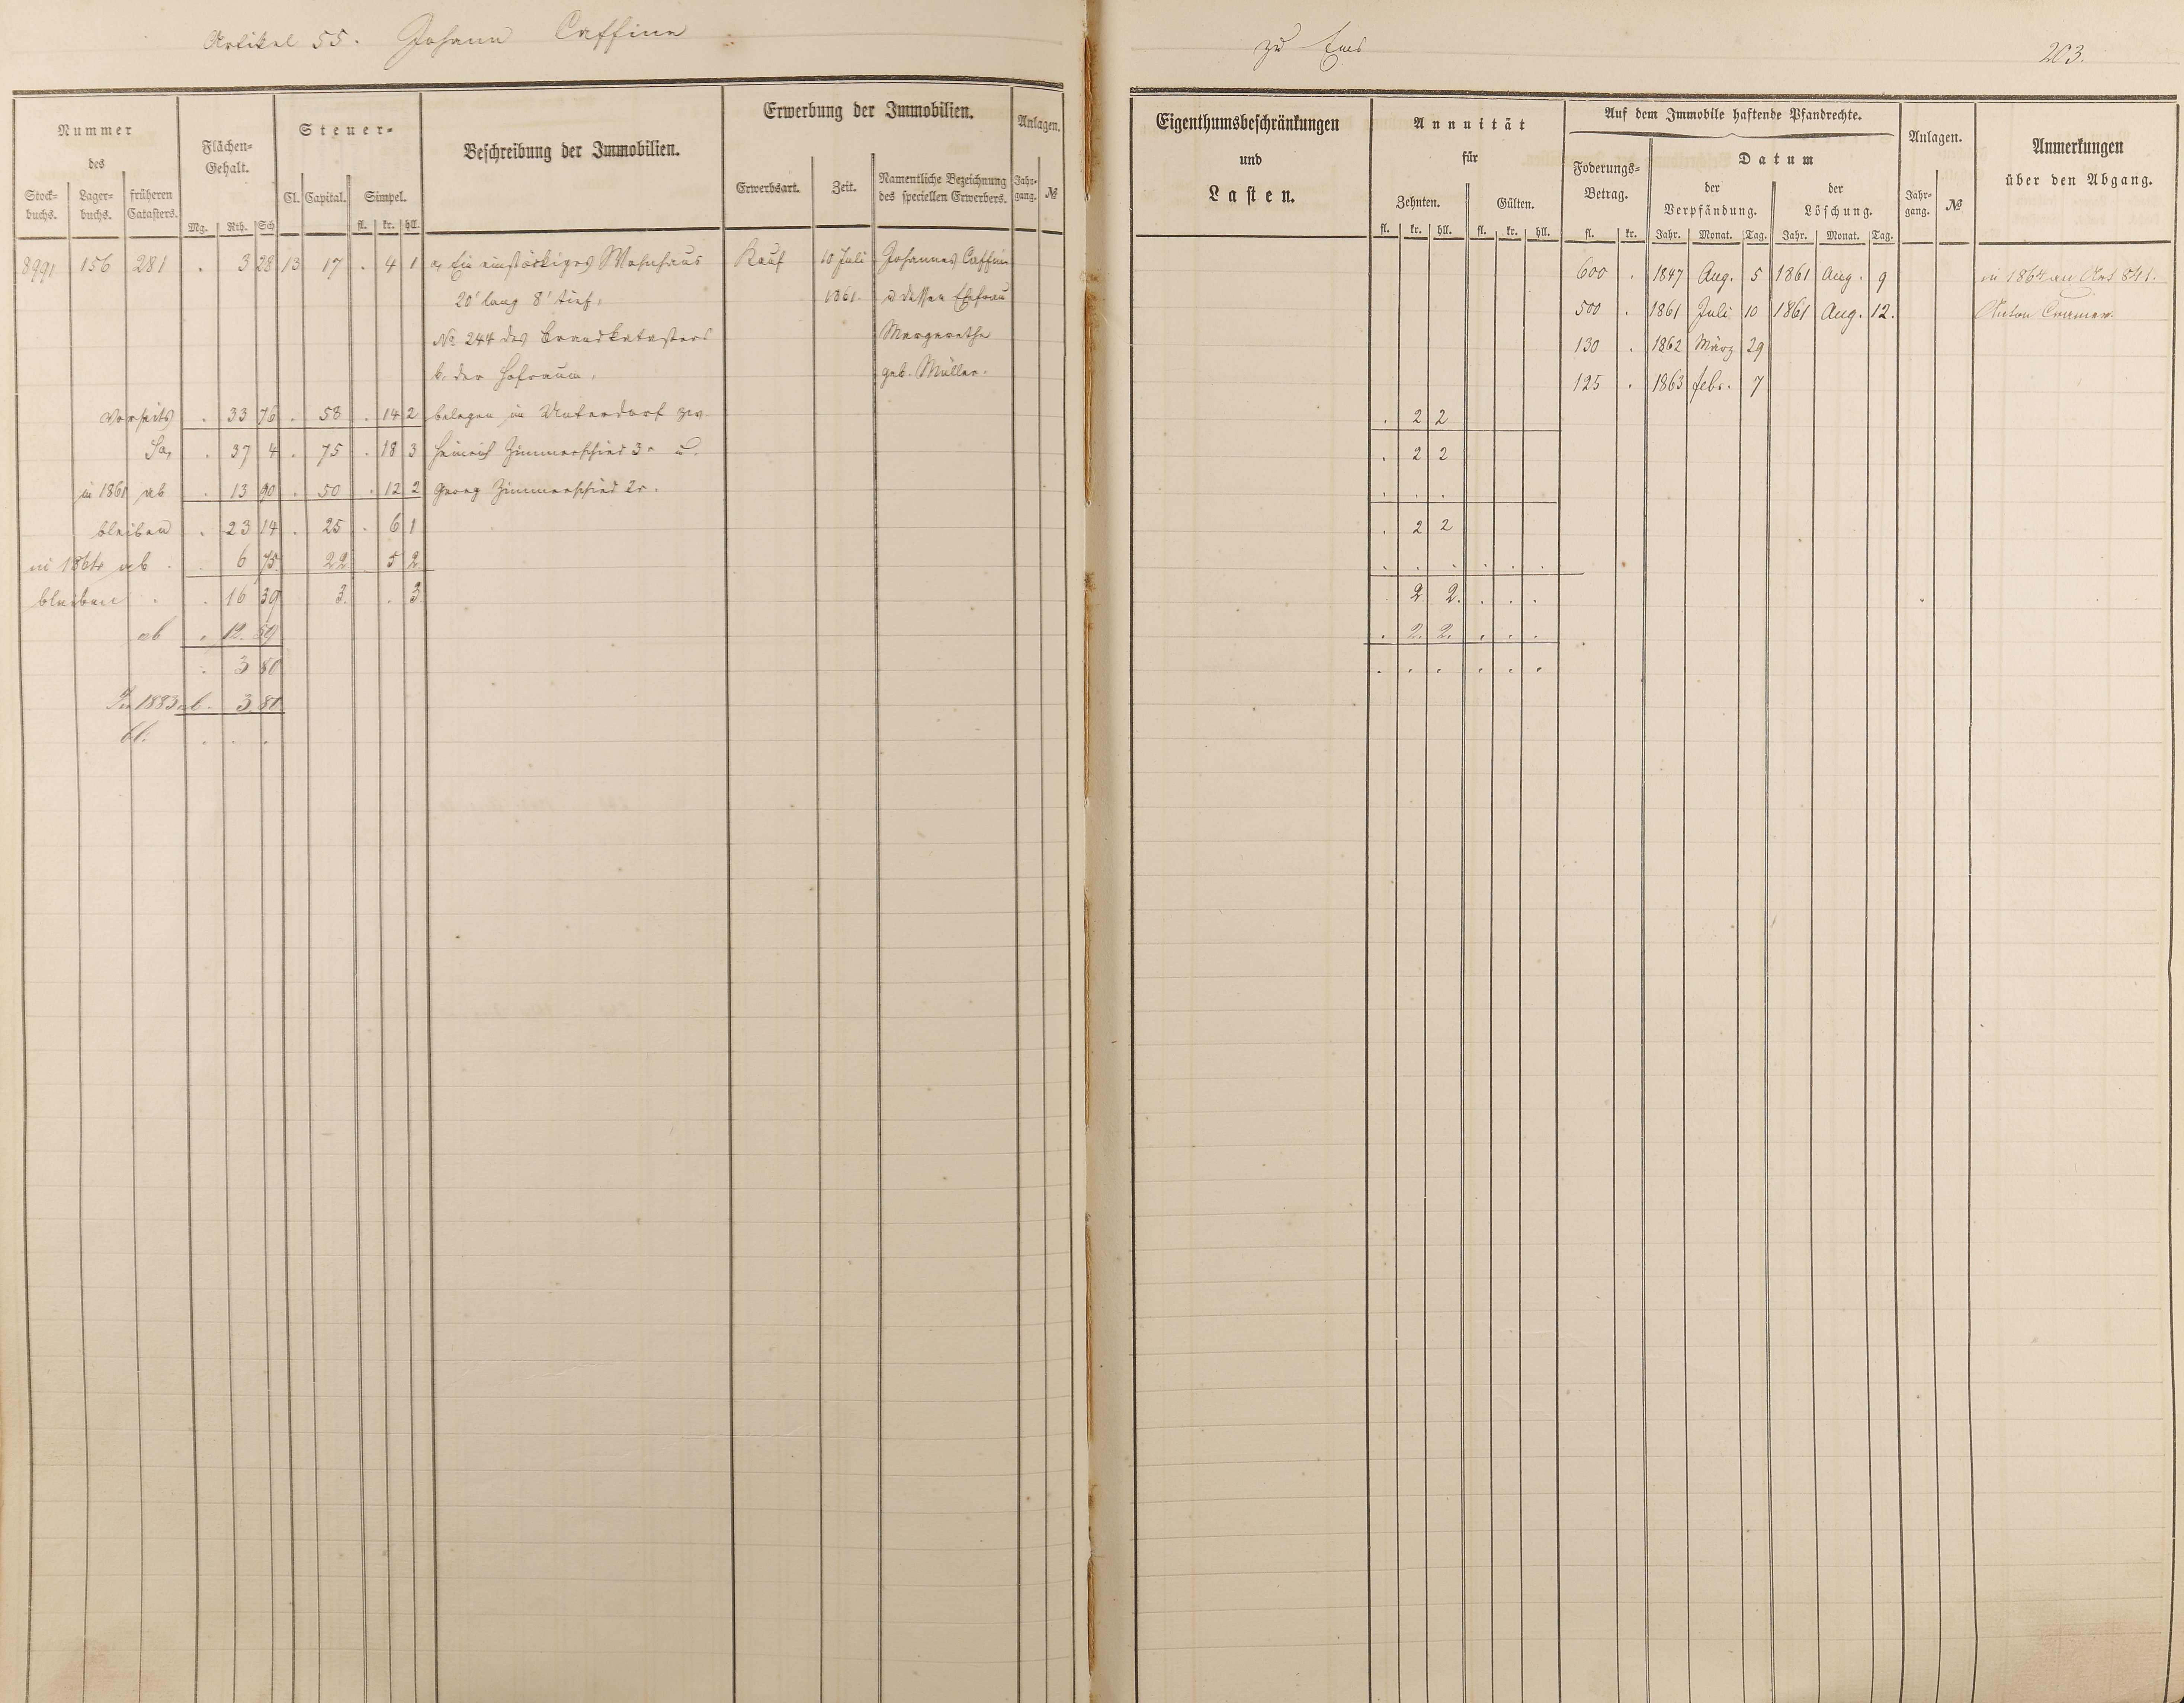 Artikel 55. Johann Caffine
zu Ems
203.
Nummer
des
Stock-
buchs.
Lager-
buchs.
früheren
Catasters.
Flächen-
Gehalt.
Mg. Rth. Sch
Steuer-
Cl. Capital. Simpel.
fl. kr. hll.
Beschreibung der Immobilien.
Erwerbung der Immobilien.
Erwerbsart. Zeit.
Namentliche Bezeichnung
des speciellen Erwerbers.
Anlagen.
Jahr-
gang. №
8991 156 281 . 3 28 13 17 . 4 1 a, Ein einstöckiges Wohnhaus Kauf 10 Juli Johannes Caffine
20' lang 8' tief, 1861. u dessen Ehefrau
No 244 des Brandkatasters Margarethe
b. der Hofraum, geb. Müller.
Vorseits . 33 76 . 58 . 14 2 belegen im Unterdorf zw.
Sa, . 37 4 . 75 . 18 3 Heinrich Zimmerschied 3r u.
in 1861 ab . 13 90 . 50 . 12 2 Georg Zimmerschied 2r.
bleiben . 23 14 . 25 . 6 1
in 1864 ab . . 6 75 22 5 2
bleiben . . 16 39 3. . 3
ab . 12. 59
. 3 80
In 1883 ab. 3 80
bl. . . .
Eigenthumsbeschränkungen
und
Lasten.
Annuität
für
Zehnten. Gülten.
fl. kr. hll. fl. kr. hll.
Auf dem Immobile haftende Pfandrechte.
Foderungs-
Betrag.
fl. kr.
Datum
der
Verpfändung.
Jahr. Monat. Tag.
der
Löschung.
Jahr. Monat. Tag.
Anlagen.
Jahr-
gang. №
Anmerkungen
über den Abgang.
600 . 1847 Aug. 5 1861 Aug. 9 in 1864 an Art. 841.
500 . 1861 Juli 10 1861 Aug. 12. Anton Cramer.
130 . 1862 März 29
125 . 1863 Febr. 7
. 2 2
. 2 2
. . .
. 2 2
. . . . . .
2 2. . . .
. 2. 2. . . .
. . . . . .